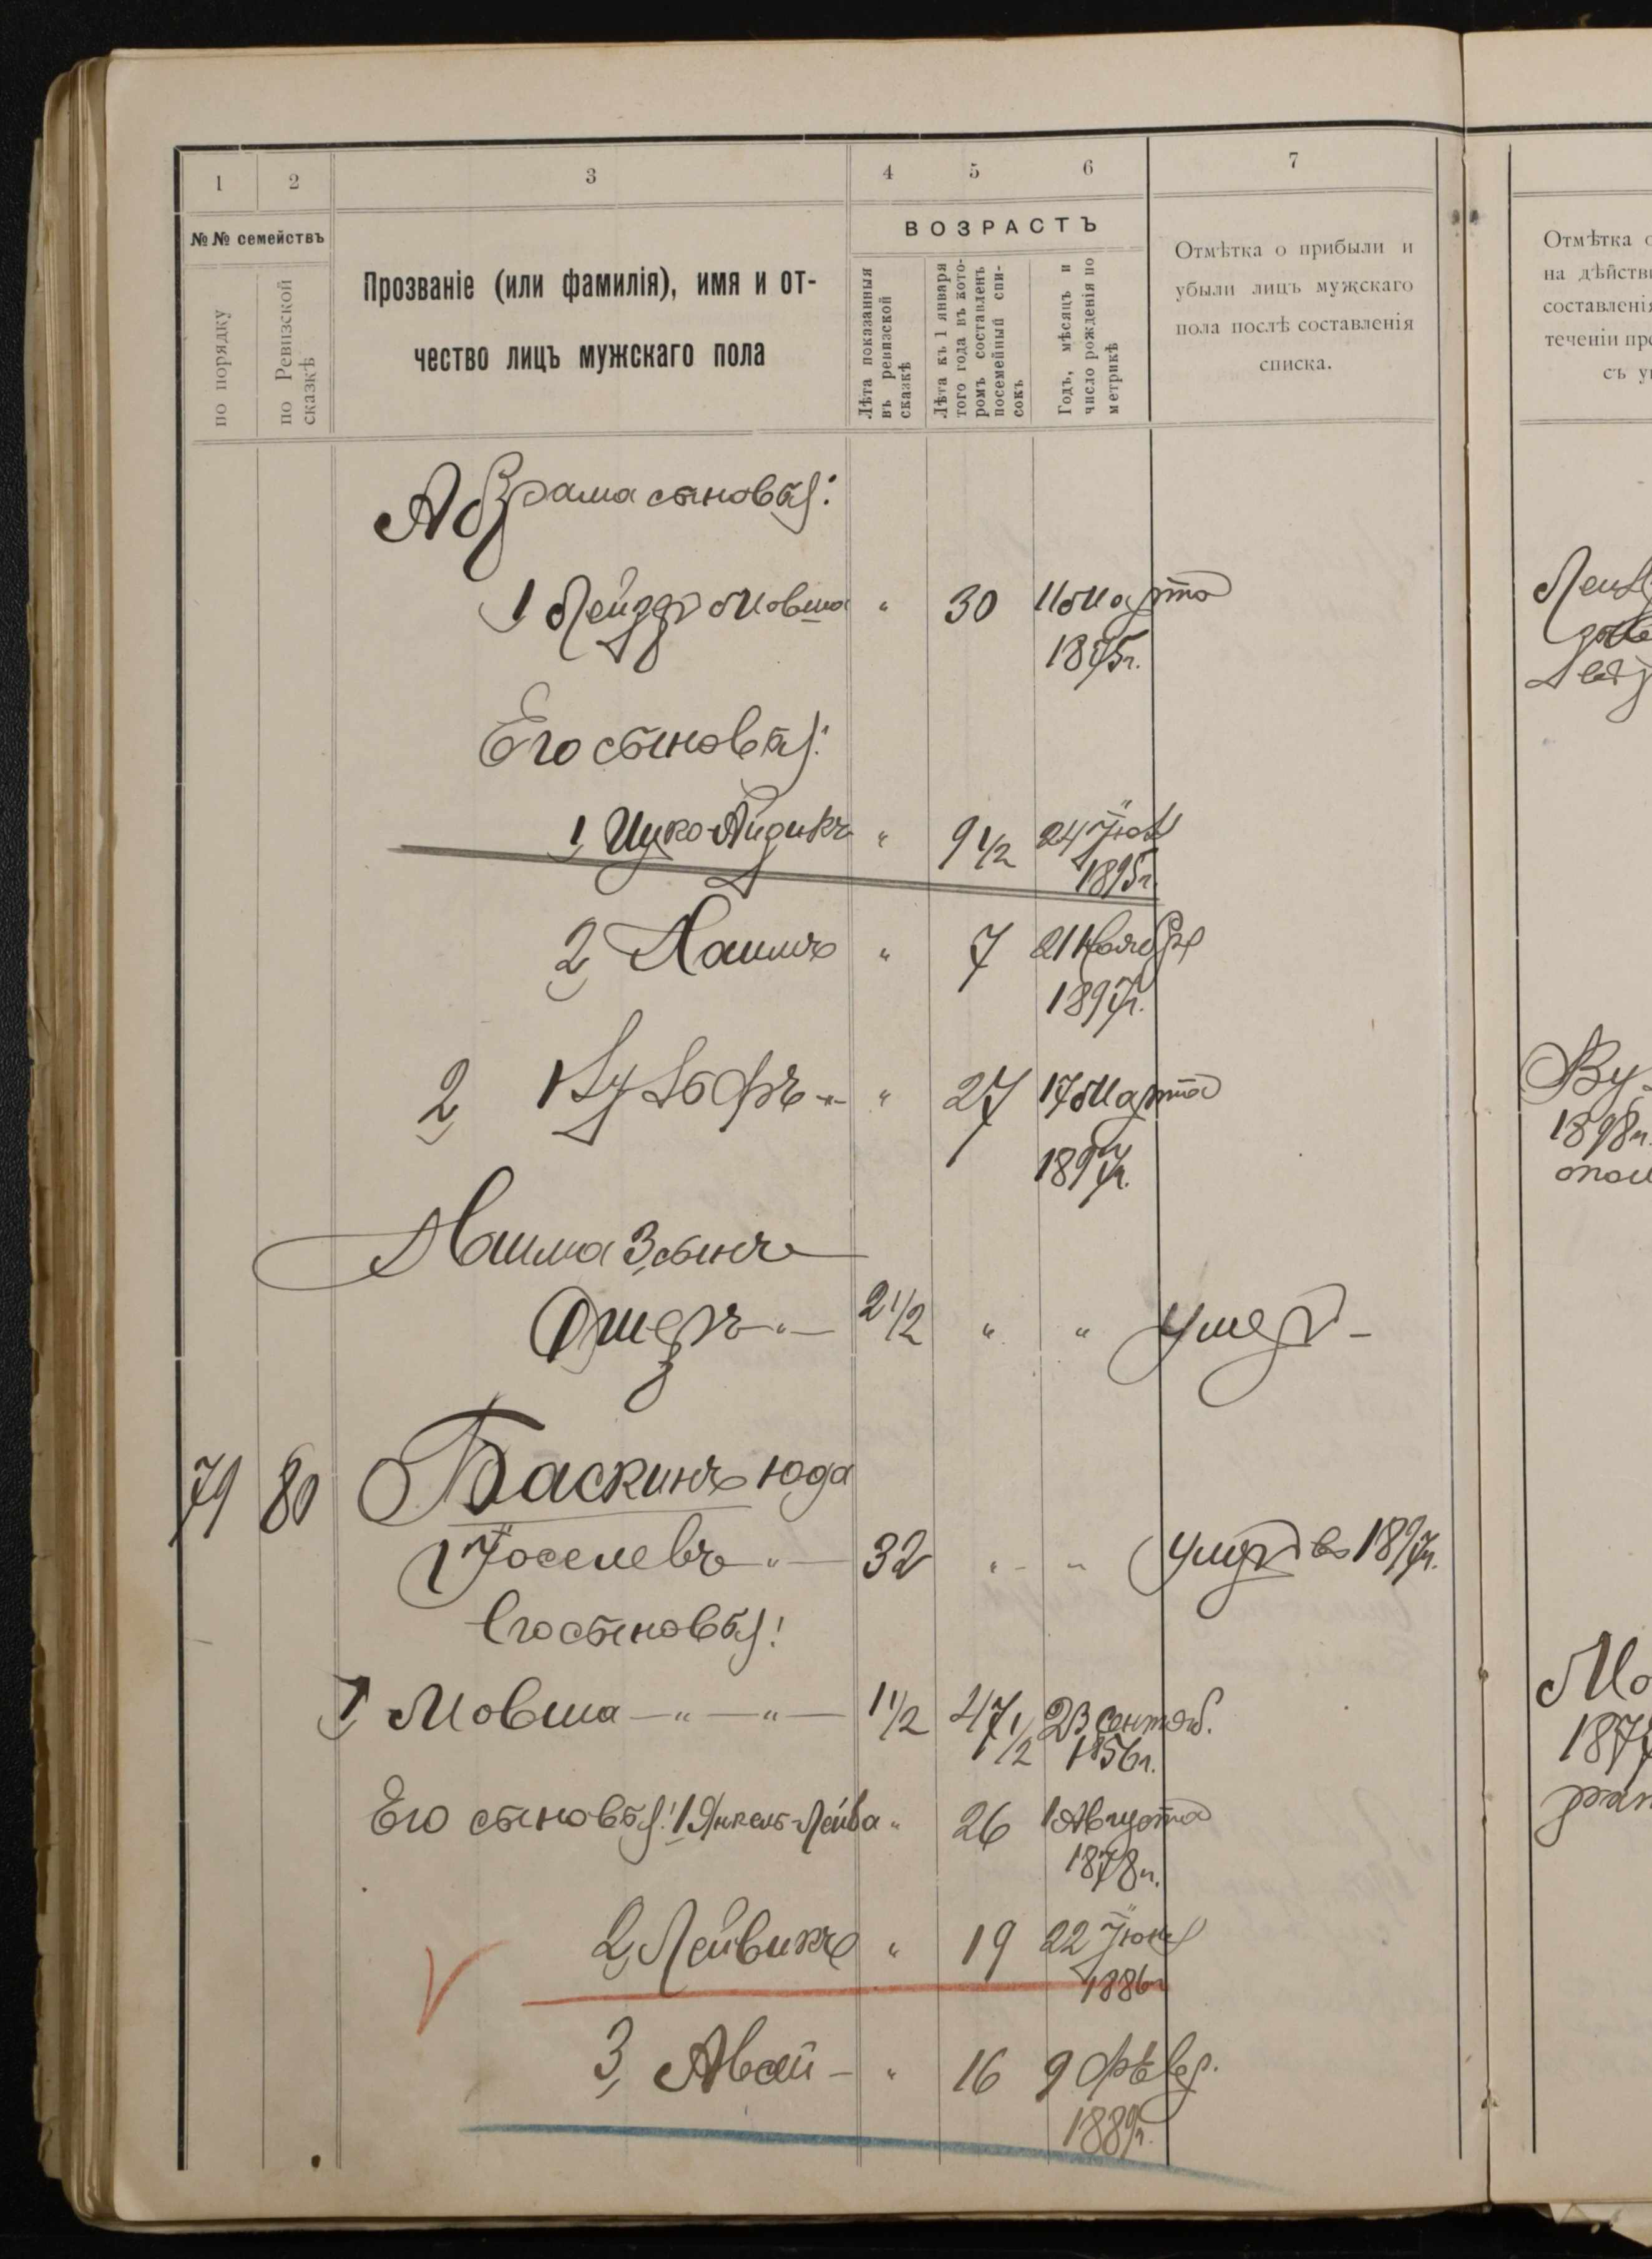 1 2 3 4 5 6 7
№№ семействъ
по порядку
по Ревизской сказкѣ
Прозваніе (или фамилія), имя и от-
чество лицъ мужскаго пола
ВОЗРАСТЪ
Лѣта показанныя
въ ревизской
сказкѣ
Лѣта къ 1 января
того года въ кото-
ромъ составленъ
посемейный спи-
сокъ
Годъ, мѣсяцъ и
число рожденія по
метрикѣ
Отмѣтка о прибыли и
убыли лицъ мужскаго
пола послѣ составленія
списка.
Отмѣтка о
на дѣйстви
составленія
теченіи пре
съ у
Абрама сыновья:
1 Лейзеръ Мовша " 30 11 Марта
1875г.
Его сыновья:
1, Ицко-Айзикъ " 9 1/2 24 Іюля
1895г.
2, Хаимъ " 7 21 Ноября
1897г.
2, Вульфъ " 27 17 Марта
189 г.
Ву
1898г.
опол
Хаима 3, сынъ
Ошеръ " 2 1/2 " " Умеръ
79 80 Баскинъ Юда
Іоселевъ " 32 " " Умеръ въ 1897г.
Его сыновья:
1, Мовша " " 1 1/2 47 1/2 23 Сентяб.
1856г.
Мо
187
рат
Его сыновья: 1, Янкель-Лейба " 26 1 Августа
1878г.
2, Лейвикъ " 19 22 Іюня
1886г
3, Авсей " 16 9 Февр.
1889г.